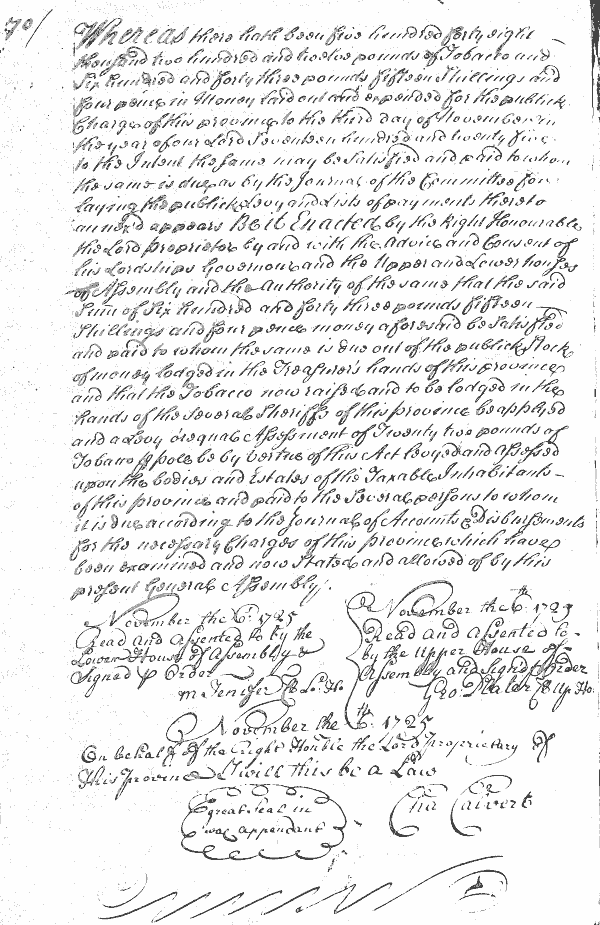 70/
Whereas there hath been five hundred forty eight
thousand two hundred and twelve pounds of Tobacco and
Six hundred and forty three pounds fifteen Shillings and
four pence in Money laid out and expended for the publick
Charge of this province to the third day of November in
the year of our Lord Seventeen hundred and twenty five
to the Intent the same may be Satisfied and paid to whom
the same is due as by the Journal of the Committee for
laying the publick Levy and Lists of payments thereto
annex'd appears Be it Enacted by the Right Honourable
the Lord Proprietor by and with the Advice and Consent of
his Lordships Governour and the Upper and Lower houses
of Assembly and the Authority of the same that the said
Sum of Six hundred and forty three pounds fifteen
Shillings and four pence money aforesaid be Satisfied
and paid to whom the same is due out of the publick Stock
of money lodged in the Treasurers hands of this province
and that the Tobacco now raised and to be lodged in the
hands of the Several Sheriffs of this province be applyed
and a Levy or equal Assessment of Twenty two pounds of
Tobacco pole be by vertue of this Act levyed and assessed
upon the bodies and Estates of the Taxable Inhabitants
of this province and paid to the Several persons to whom
it is due according to the Journal of Accounts & Disbursements
for the necessary Charges of this province which have
been examined and now Stated and allowed of by this
present General Assembly.
November the 6th: 1725
Read and Assented to by the
Lower House of Assembly &
Signed p Order
m Jenifer Cl Lo: Ho
November the 6th 1725
Read and assented to
by the Upper House of
Assembly and Signed p Order
Geo: Plater Cl Up Ho:
November the 6th: 1725
On behalf of the Right Honble the Lord Proprietary of
this Province I will this be a Law
Cha Calvert
great Seal in
wax appendant